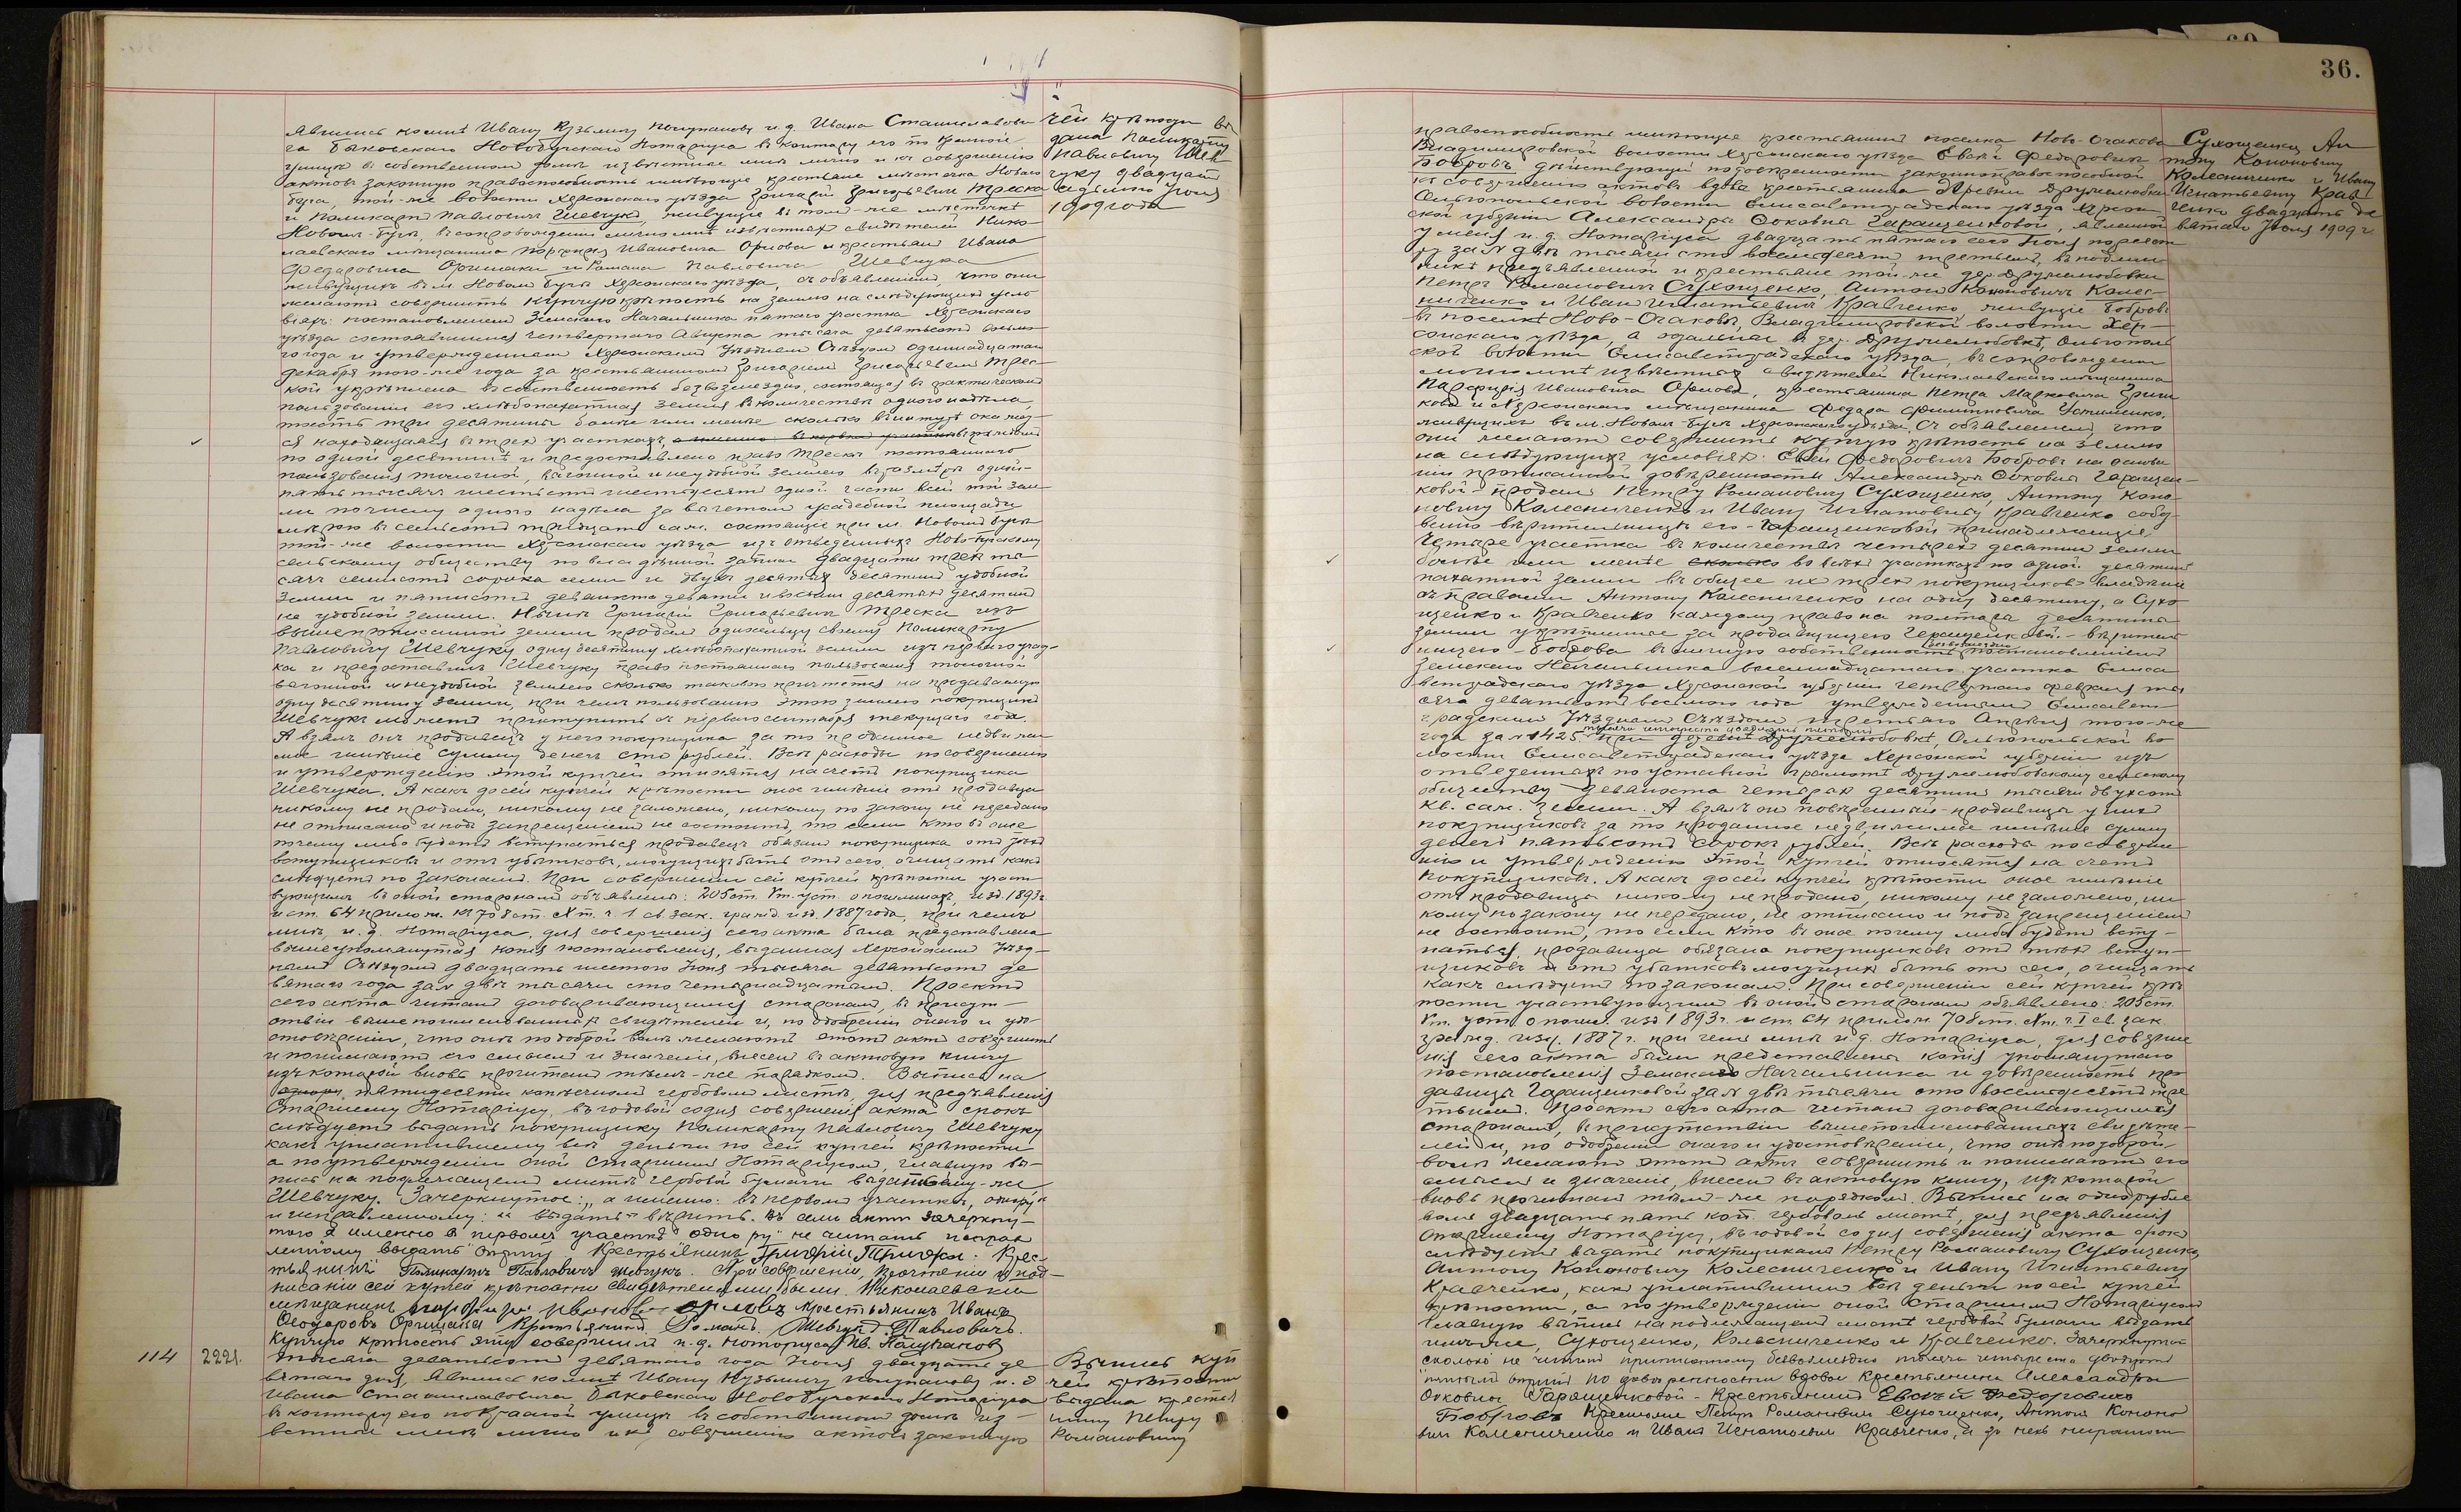 36.
явились ко мнѣ Ивану Кузьмичу Полупанову и.д. Ивана Станиславови-
ча Быковскаго Новобугскаго Нотаріуса въ контору его по Красной
улицѣ въ собственномъ домѣ извѣстные мнѣ лично и къ совершенію
актовъ законную правоспособность имѣющіе крестьяне мѣстечка Новаго
Буга, той-же волости Херсонскаго уѣзда Григорій Григорьевичъ Треска
и Поликарпъ Павловичъ Шевчукъ, живущіе въ томъ-же мѣстечкѣ
Новомъ-Бугѣ, въ сопровожденіи лично мнѣ извѣстныхъ свидѣтелей Нико-
лаевскаго мѣщанина Порфирія Ивановича Орлова и крестьян Ивана
Федоровича Оришаки и Романа Павловича Шевчука
живущихъ въ м. Новомъ Бугѣ Херсонскаго уѣзда, съ объявленіемъ, что они
желаютъ совершить купчую крѣпость на землю на слѣдующихъ усло-
віяхъ: постановленіемъ Земскаго Начальника пятаго участка Херсонскаго
уѣзда состоявшимся четвертаго Августа тысяча девятьсотъ восьмо-
го года и утвержденнымъ Херсонскимъ Уѣзднымъ Съѣздомъ одиннадцатаго
декабря того-же года за крестьяниномъ Григоріемъ Григорьевымъ Трес-
кой укрѣплена въ собственность безвозмездно, состоящая въ фактическомъ
пользованіи его хлѣбопахатная земля въ количествѣ одного надѣла,
три десятины болѣе или менѣе сколько въ натурѣ окажет-
ся находящаяся въ трехъ участкахъ, а именно: въ первомъ участкѣ
по одной десятинѣ и предоставлено право Трескѣ постояннаго
пользованія толочной, выгонной и неудобной землею въ размѣрѣ одной-
пять тысячъ шестьсотъ шестьдесятъ одной части всей той зем-
ли по числу одного надѣла за вычетомъ усадебной площади
мѣрою въ семьсотъ тридцать саж. состоящіе при м. Новомъ Бугѣ
той-же волости Херсонскаго уѣзда изъ отведенныхъ Ново-Бугскому
сельскому обществу по владѣнной записи двадцати трехъ ты-
сячъ семисотъ сорока семи и двухъ десятыхъ десятинъ удобной
земли и пятисотъ девяносто девяти и восьми десятыхъ десятинъ
не удобной земли. Нынѣ Григорій Григорьевичъ Треска изъ
вышепрописанной земли продалъ односельцу своему Поликарпу
Павловичу Шевчуку одну десятину хлѣбопахатной земли изъ перваго участ-
ка и предоставилъ Шевчуку право постояннаго пользованія толочной
выгонной и неудобной землею сколько таковой причтется на продаваемую
одну десятину земли, при чемъ пользованію этою землею покупщикъ
Шевчукъ можетъ приступить съ перваго сентября текущаго года.
А взялъ онъ продавецъ у него покупщика за то проданное недвижи-
мое имѣніе сумму денегъ сто рублей. Всѣ расходы по совершенію
и утвержденію этой купчей относятся на счетъ покупщика
Шевчука. А какъ до сей купчей крѣпости оное имѣніе отъ продавца
никому не продано, никому не заложено, никому по закону не передано
не отписано и подъ запрещеніемъ не состоитъ, то если кто въ оное
почему либо будетъ вступаться продавецъ обязанъ покупщика отъ тѣхъ
вступщиковъ и отъ убытковъ, могущихъ быть отъ сего, очищать какъ
слѣдуетъ по законамъ. При совершеніи сей купчей крѣпости участ-
вующимъ въ оной сторонамъ объявлены: 205 ст. Vт. уст. о пошлинахъ, изд. 1893 г.
и ст. 64 прилож. къ 708 ст. Х т. ч. 1 св. зак. гражд. изд. 1887 года, при чемъ
мнѣ, и.д. Нотаріуса, для совершенія сего акта была представлена
вышеупомянутая копія постановленія, выданная Херсонскимъ Уѣзд-
нымъ Съѣздомъ двадцать шестого Іюня тысяча девятьсотъ де-
вятаго года за № двѣ тысячи сто четырнадцатымъ. Проектъ
сего акта читанъ договаривающимся сторонамъ, въ присут-
ствіи вышепоименованныхъ свидѣтелей и, по одобреніи онаго и удо-
стовѣреніи, что онѣ по доброй волѣ желаютъ этотъ актъ совершить
и понимаютъ его смыслъ и значеніе, внесенъ въ актовую книгу
изъ которой вновь прочитанъ тѣмъ-же порядкомъ. Выпись на
пятидесяти копѣечномъ гербовомъ листѣ, для предъявленія
Старшему Нотаріусу, въ годовой со дня совершенія акта срокъ
слѣдуетъ выдать покупщику Поликарпу Павловичу Шевчуку
какъ уплатившему всѣ деньги по сей купчей крѣпости
а по утвержденіи оной Старшимъ Нотаріусомъ, главную вы-
пись на подлежащемъ листѣ гербовой бумаги выдать ему-же
Шевчуку. Зачеркнутое: "а именно: въ первомъ участкѣ, одно ру"
и исправленному: "выдать" вѣрить. Въ семъ актѣ зачеркну-
того "а именно в первомъ участкѣ" "одно ру" не читать исправ
ленному "выдать" вѣрить. Крестьянинъ Григорій Триска. Крес-
тьянинъ Поликарпъ Павловичъ Шевчукъ. При совершеніи, прочтеніи и под-
писаніи сей купчей крѣпости свидѣтелями были: Николаевскій
мѣщанинъ Порфирій Ивановъ Орловъ Крестьянинъ Иванъ
Феодоровъ Оришака Крестьянинъ Романъ Шевчукъ Павловичъ.
Купчую крѣпость эту совершилъ и.д. нотаріуса Ив. Полупановъ
114 2221. Тысяча девятьсотъ девятаго года Іюня двадцать де-
вятаго дня, явились ко мнѣ Ивану Кузьмичу Полупанову и.д
Ивана Станиславовича Быковскаго Новобугскаго Нотаріуса
въ контору его по Красной улицѣ въ собственномъ домѣ из-
вѣстные мнѣ лично и къ совершенію актовъ законную
чей крѣпости вы
дана Поликарпу
Павловичу Шев
чуку двадцать
седьмого Іюня
1909 года
Выпись куп
чей крѣпости
выдана кресть
нину Петру
Романовичу
правоспособность имѣющіе крестьянинъ поселка Ново-Очакова
Владимировской волости Херсонскаго уѣзда Евсѣй Федоровичъ
Бобровъ дѣйствующій по довѣренности законноправоспособной
къ совершенію актовъ вдовы крестьянина деревни Дружелюбовки
Ольгопольской волости Елисаветградскаго уѣзда Херсон
ской губерніи Александры Ооковны Гаращенковой, явленной
у меня и.д. Нотаріуса двадцать пятаго сего Іюня по реест
ру за № двѣ тысячи сто восемьдесятъ третьимъ, въ подлин-
никѣ предъявленной и крестьяне той-же дер. Дружелюбовки
Петръ Романовичъ Сухощенко, Антонъ Кононовичъ Колес-
ниченко и Иванъ Игнатьевичъ Кравченко, живущіе Бобровъ
въ поселкѣ Ново-Очаковѣ, Владимировской волости Хер-
сонскаго уѣзда, а остальные въ дер. Дружелюбовкѣ, Ольгополь
ской волости Елисаветградскаго уѣзда, въ сопровожденіи
лично мнѣ извѣстныхъ свидѣтелей Николаевскаго мѣщанина
Порфирія Ивановича Орлова, крестьянина Петра Марковича
и Херсонскаго мѣщанина Федора Филипповича Устименко,
живущихъ въ м. Новомъ-Бугѣ Херсонскаго уѣзда. Съ объявленіемъ что
они желаютъ совершить купчую крѣпость на землю
на слѣдующихъ условіяхъ: Евсѣй Федоровичъ Бобровъ на основа
ніи прописанной довѣренности Александры Ооковны Гаращен-
ковой - продалъ Петру Романовичу Сухощенко, Антону Коно-
новичу Колесниченко и Ивану Игнатьевичу Кравченко собст
венно вѣрительницѣ его - Гаращенковой принадлежащіе
четыре участка въ количествѣ четырехъ десятинъ земли
болѣе или менѣе сколько во всѣхъ участкахъ по одной десятинѣ
пахатной земли въ общее ихъ трехъ покупщиковъ владѣніе
съ правомъ Антону Колесниченко на одну десятину, а Сухо
щенко и Кравченко каждому право на полторы десятины
земли укрѣпленное за продавщицею Геращенковой - вѣритель
ницею - Боброва въ личную собственность безвозмездно постановленіемъ
Земскаго Начальника восемнадцатаго участка Елиса
ветградскаго уѣзда Херсонской губерніи четвертаго февраля ты
сяча девятьсотъ восьмого года утвержденнымъ Елисавет
градскимъ Уѣзднымъ Съѣздомъ третьяго Апрѣля того-же
года за № 1425 при деревнѣ Дружелюбовкѣ, Ольгопольской во
лости Елисаветградскаго уѣзда Херсонской губерніи изъ
отведенныхъ по уставной грамотѣ Дружелюбовскому сельскому
обществу девяносто четырехъ десятинъ тысячи двухсотъ
кв. саж. земли. А взялъ онъ повѣренный-продавицы у нихъ
покупщиковъ за то проданное недвижимое имѣніе сумму
денегъ пятьсотъ сорокъ рублей. Всѣ расходы по соверше-
нію и утвержденію этой купчей относятся на счетъ
покупщиковъ. А какъ до сей купчей крѣпости оное имѣніе
отъ продавицы никому не продано, никому не заложено, ни-
кому по закону не передано, не отписано и подъ запрещеніемъ
не состоитъ, то если кто въ оное почему либо будетъ всту-
паться, продавица обязана покупщиковъ отъ тѣхъ вступ-
щиковъ и отъ убытковъ могущихъ быть отъ сего, очищать
какъ слѣдуетъ по законамъ. При совершеніи сей купчей крѣ
пости участвующимъ въ оной сторонамъ объявлено: 205 ст.
Vт. уст. о пошл. изд. 1893 г. и ст. 64 прилож. 708 ст. Хт. ч. I св. зак.
гражд. изд. 1887 г. при чемъ мнѣ и.д. Нотаріуса, для соверше
нія сего акта были представлены копія упомянутаго
постановленія Земскаго Начальника и довѣренность про
давицы Гаращенковой за № двѣ тысячи сто восемьдесятъ тре
тьимъ. Проектъ сего акта читанъ договаривающимся
сторонамъ, въ присутствіи вышепоименованныхъ свидѣте-
лей и, по одобреніи онаго и удостовѣреніи, что онѣ по доброй
волѣ желаютъ этотъ актъ совершить и понимаютъ его
смыслъ и значеніе, внесенъ въ актовую книгу, изъ которой
вновь прочитанъ тѣмъ-же порядкомъ. Выпись на однорубле
вомъ двадцать пять коп. гербовомъ листѣ, для предъявленія
Старшему Нотаріусу, въ годовой со дня совершенія акта срокъ
слѣдуетъ выдать покупщикамъ Петру Романовичу Сухощенко
Антону Кононовичу Колесниченко и Ивану Игнатьевичу
Кравченко, какъ уплатившимъ всѣ деньги по сей купчей
крѣпости, а по утвержденіи оной Старшимъ Нотаріусомъ
главную выпись на подлежащемъ листѣ гербовой бумаги выдать
имъ-же, Сухощенко, Колесниченко и Кравченко. Зачеркнутое
сколько не читать приписанному безвозмездно тысяча четыреста двадцать
пятымъ вѣрить По довѣренности вдовы крестьянина Александры
Ооковны Гаращенковой - Крестьянинъ Евсѣй Федоровичъ
Бобровъ Крестьяне Петръ Романовичъ Сухощенко, Антонъ Кононо
вичъ Колесниченко и Иванъ Игнатьевичъ Кравченко, а за нихъ неграмот
Сухощенко, Ан
тону Кононовичу
Колесниченко и Ивану
Игнатьевичу Крав
ченко двадцать де
вятаго Іюня 1909 г.